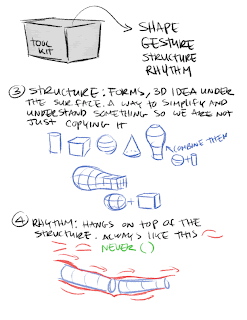 TOOL
KIT
SHAPE
GESTURE
STRUCTURE
RHYTHM
③ STRUCTURE: FORMS, 3D IDEA UNDER
THE SURFACE. A WAY TO SIMPLIFY AND
UNDERSTAND SOMETHING SO WE ARE NOT
JUST COPYING IT
COMBINE THEM
④ RHYTHM: HANGS ON TOP OF THE
STRUCTURE. ALWAYS LIKE THIS
NEVER ( )